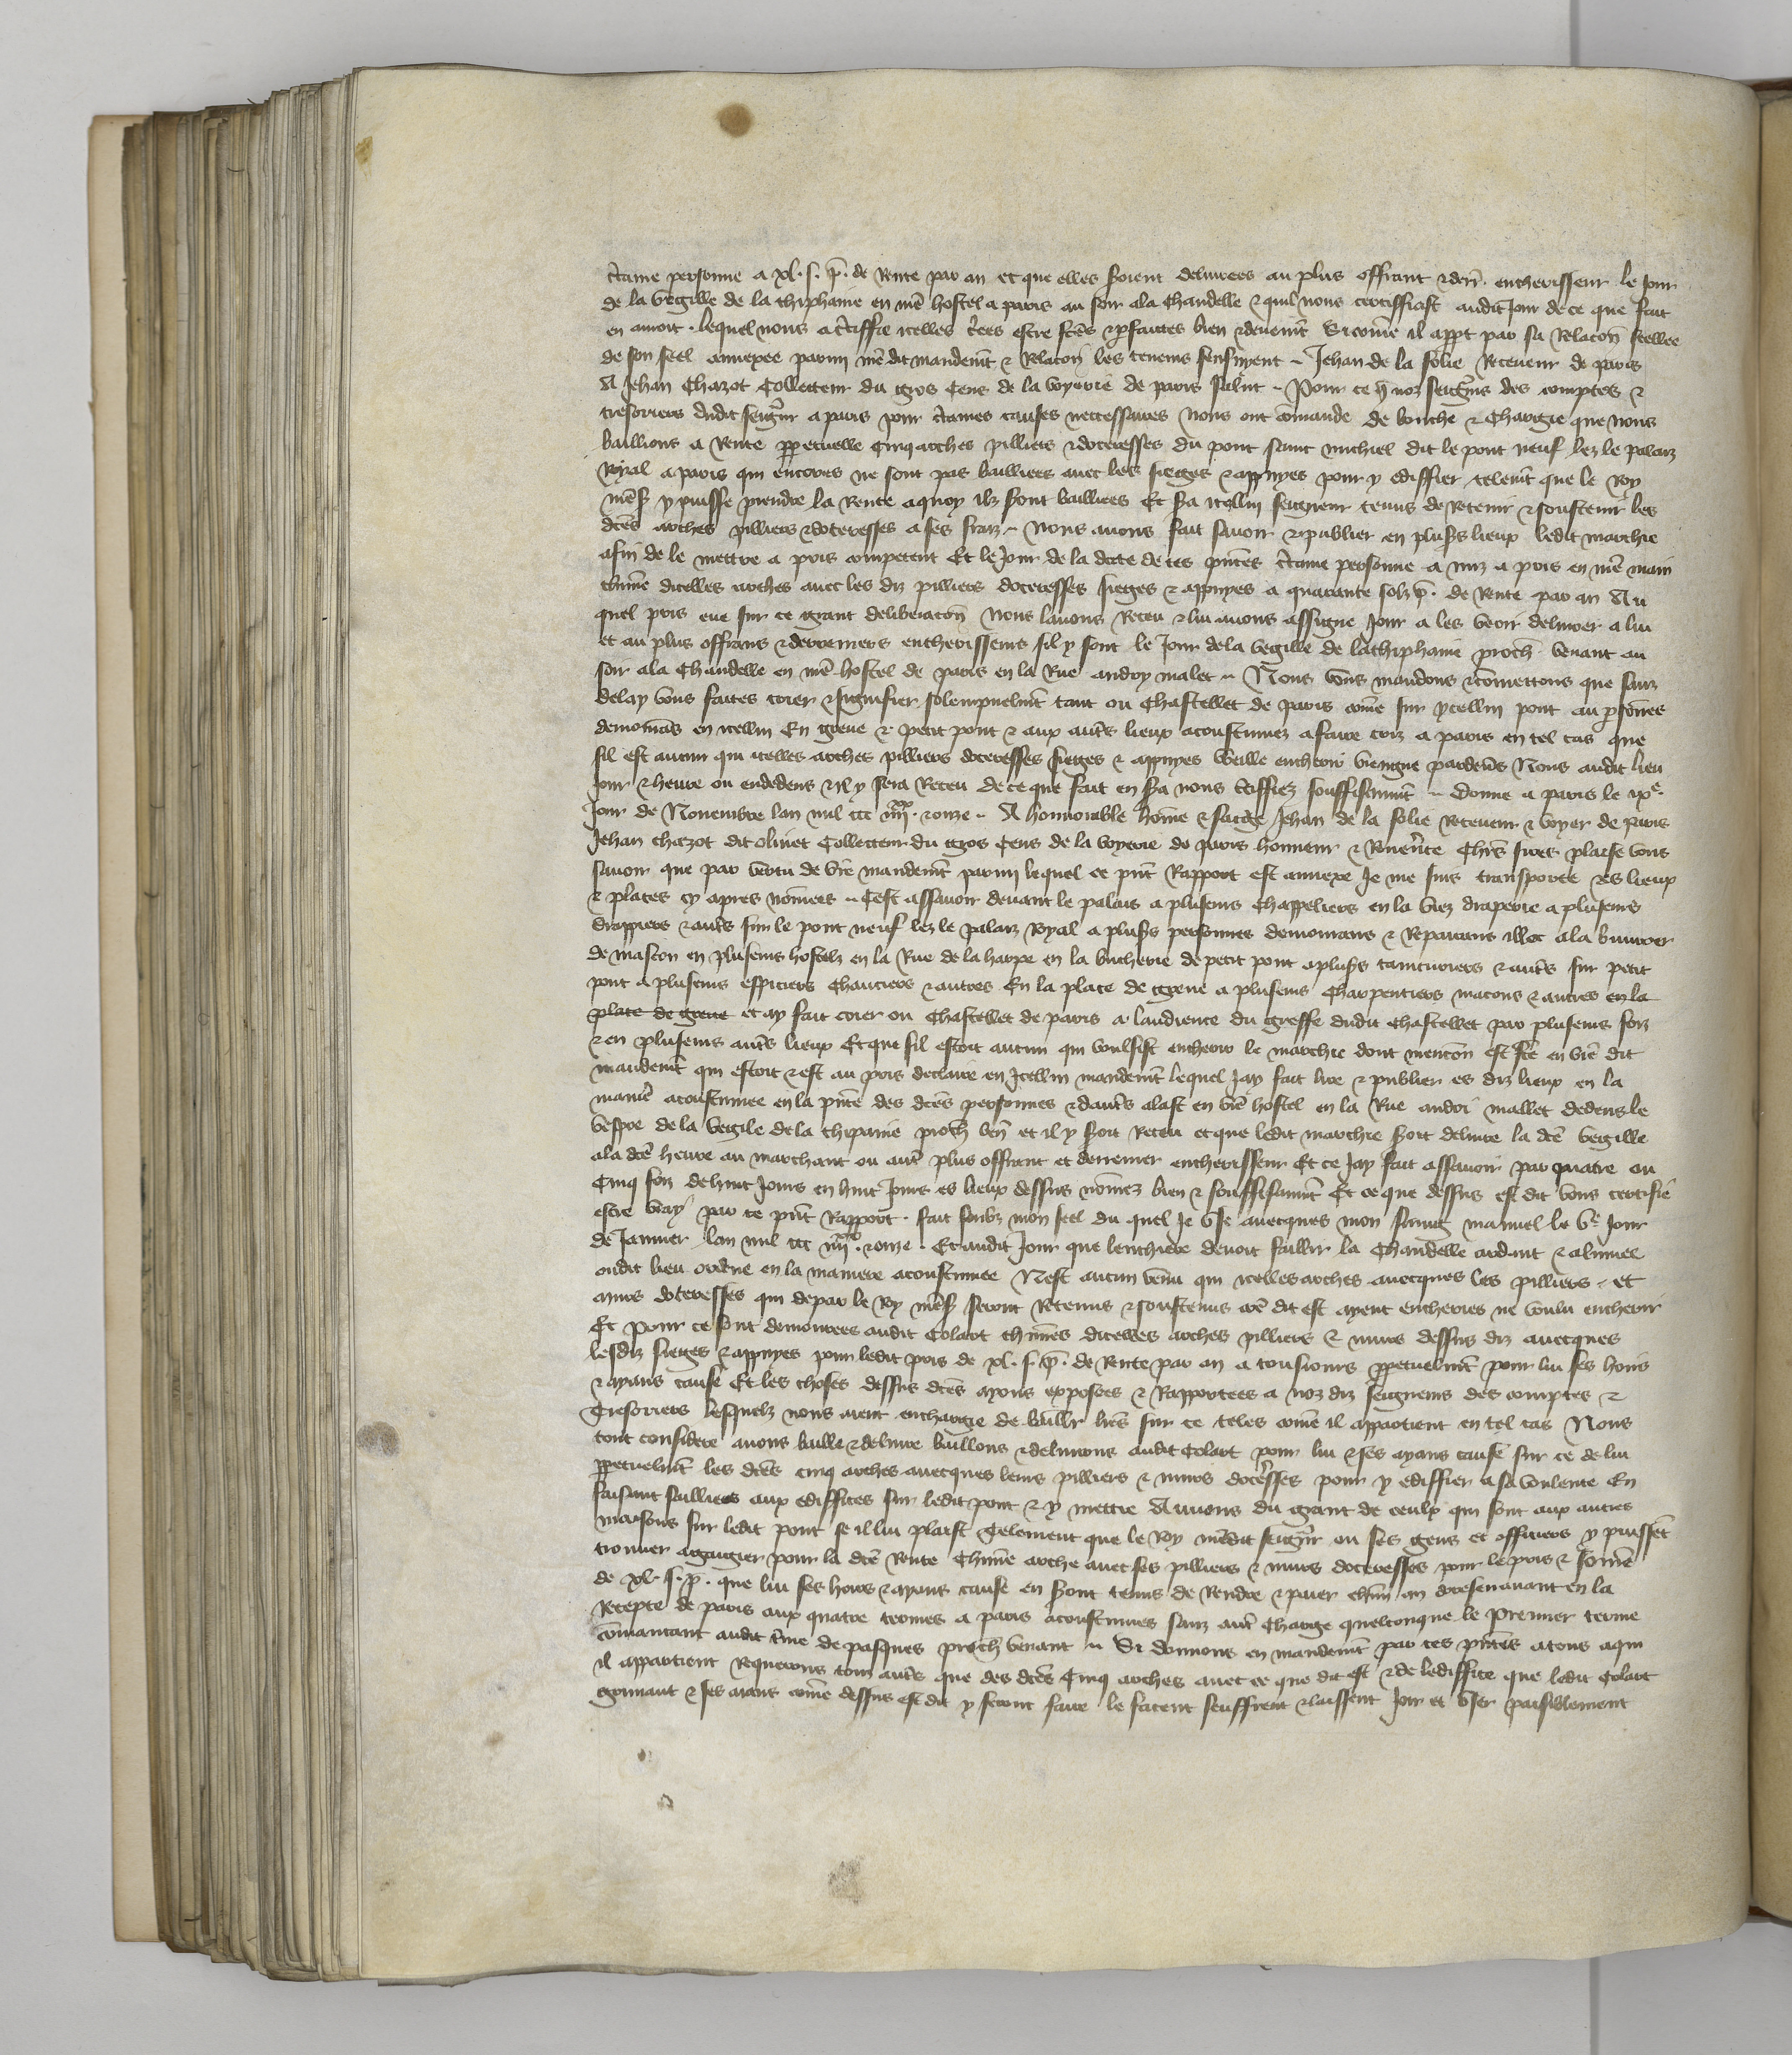 c̃taine personne a xl. s. p̃. de Rente par an et que elles soient delivrees au plus offrant & derñ. encherisseur le Jour
de la vegille de la thiphaine en mẽ hostel a paris au soir ala chandelle & quil nous certiffiast audit Jour de ce que fait
en auroit. lequel nous a c̃tiffie icelles c̃rees estre fc̃es & p̃faictes bien & deuem̃t Si com̃e il app̃t par sa Relacoñ seellee
de son seel annexee parmi mẽ dit mandem̃t & Relacoñ les teneurs sensuyent ~ Jehan de la folie Receveur de paris
A Jehan Chazot Collecteur du gros cens de la voyerie de paris salut ~ Pour ce q̃ noz seign̄rs des comptes &
tresoriers dudit seign̄r a paris pour c̃taines causes neccessaires Nous ont com̃ande de bouche & chargie que nous
baillions a Rente p̱petuelle Cinq arches pilliers & doteresses du pont saint michiel dit le pont neuf lez le palaiz
Royal a paris qui encores ne sont pas bailliees avec les sieges & appuyes pour y ediffier telem̃t que le Roy
mẽs̃ y puisse prendre la Rente a quoy ilz sont bailliees Et s̃a icellui seigneur tenus de Retenir & soustenir les
dc̃es arches pilliers & doteresses a ses fraiz ~ Nous avons fait savoir & publier en plus̃s lieux ledit marchie
afin de le mettre a pris competent Et le Jour de la date de ces p̃ntes c̃taine personne a mis a pris en mẽ main
ch̃une dicelles arches avec les diz pilliers doteresses sieges & appuyes a quarante solz p̃. de Rente par an Au
quel pris eue sur ce grant deliberacoñ Nous lavons Receu & lui avons assigne Jour a les veoir delivrer a lui
et au plus offrans & derreniers encherisseurs sil y sont le Jour dela vegille de lathiphaine proch̃ venant au
soir ala chandelle en mẽ hostel de paris en la Rue andry malet ~ Nous vous mandons & com̃ettons que sanz
delay vous faites crier & signifier solempnelm̃t tant ou Chastellet de paris com̃e sur ycellui pont au p̃son̄es
demoran̄s en icellui En greve & petit pont & aux aut̃s lieux acoustumez a faire criz a paris en tel cas que
sil est aucun qui icelles arches pilliers doteresses sieges & appuyes veille encherir viengne pardev̄s Nous audit lieu
Jour & heure ou endedens & Il y sera Receu de ce que fait en s̃a nous c̃tiffiez souffisamm̃t ~ Donne a paris le ixᵉ.
Jour de Novembre lan mil ccc iiiiˣˣ. & onze ~ A honnorable hom̃e & saige Jehan de la folie Receveur & voyer de paris
Jehan chazot dit olivet Collecteur du gros cens de la voyerie de paris honneur & Rever̃nce Chr̃s sires plaise vous
savoir que par vertu de vr̃e mandem̃t parmi lequel ce p̃nt Rapport est annexe Je me suis transporte es lieux
& places cy apres nom̃ees ~ Cest assavoir devant le palais a plusieurs chappeliers en la viez draperie a plusieurs
drappiers & aut̃s sur le pont neuf lez le palaiz Royal a plus̃s personnes demorans & Reparans illec ala bavoer
de mascon en plusieurs hostelz en la Rue de la harpe en la bucherie de petit pont a plus̃s tainturiers & aut̃s sur petit
pont a plusieurs espiciers chanciers & autres En la place de greve a plusieurs Charpentiers macons & autres en la
place de greve et ay fait crier ou Chastellet de paris a laudience du greffe dudit chastellet par plusieurs foiz
& en plusieurs aut̃s lieux Et que sil estoit aucun qui voulsist encherir le marchie dont mencoñ est fc̃e en vr̃e dit
mandem̃t qui estoit & est au pris declaire en Icellui mandem̃t lequel Jay fait lire & publier es diz lieux en la
manier̃ acoustumee en la p̃nce des dc̃es personnes & daut̃s alast en vr̃e hostel en la Rue andri mallet dedens le
vespre de la vegile dela thiphaine proch̃ veñ et il y soit Receu et que ledit marchie soit delivre la dc̃e vegille
ala dc̃e heure au marchant ou aut̃ plus offrant et derrenier encherisseur Et ce Jay fait assavoir par quatre ou
Cinq foiz de huit Jours en huit Jours es lieux dessus nom̃ez bien & souffisamm̃t Et ce que dessus est dit vous certifie
estre vray par ce p̃nt Rapport. fait soubz mon seel du quel Je use avecques mon saing manuel le vᵉ Jour
de Janvier lan mil ccc iiiiˣˣ. & onze. Et audit Jour que lenchiere devoit faillir la chandelle ardant & alumee
oudit lieu ordene en la maniere acoustumee Nest aucun venu qui icelles arches avecques les pilliers. et
murs doteresses qui depar le Roy mẽs̃ seront Retenus & soustenus com̃ dit est ayent encheries ne voulu encherir
Et pour ce sont demourees audit Colart ch̃unes dicelles arches pilliers & murs dessus diz avecques
lesdiz sieges & appuyes pour ledit pris de xl. s. p̃. de Rente par an a tousiours p̱petuelm̃t pour lui ses hoirs
& ayans cause Et les choses dessus dc̃es ayons exposees & Rapportees a noz diz seigneurs des comptes &
Tresoriers lesquelz nous aient enchargie de baillr̃ lr̃es sur ce teles com̃e il appartient en tel cas Nous
tout considere avons baille & delivre baillons & delivrons audit Colart pour lui & ses ayans cause sur ce de lui
p̱petuelm̃t les dc̃es cinq arches avecques leurs pilliers & murs dotẽsses pour y ediffier a sa voulente En
faisant saillies aux ediffices sur ledit pont & y mettre Auvens du grant de ceulx qui sont aux autres
maisons sur ledit pont se il lui plaist Telement que le Roy mẽdit seign̄r ou ses gens et officiers y puissẽt
trouver agaigier pour la dc̃e Rente Ch̃une arche avec ses pilliers & murs doteresses pour le pris & som̃e
de xl. s. p̃. que lui ses hoirs & ayans cause en sont tenus de Rendre & paier ch̃un an doresenavant en la
Recepte de paris aux quatre termes a paris acoustumes sanz aut̃ charge quelconque le Premier terme
com̃ancant audit t̃me de pasques proch̃ venant ~ Si donnons en mandem̃t par ces p̃ntes a tous aqui
il appartient Requerons tous aut̃s que des dc̃es Cinq arches avec ce que dit est & de lediffice que ledit Colart
gormant & ses aians com̃e dessus est dit y feront faire le facent seuffrent & laissent Joir et user paisiblement